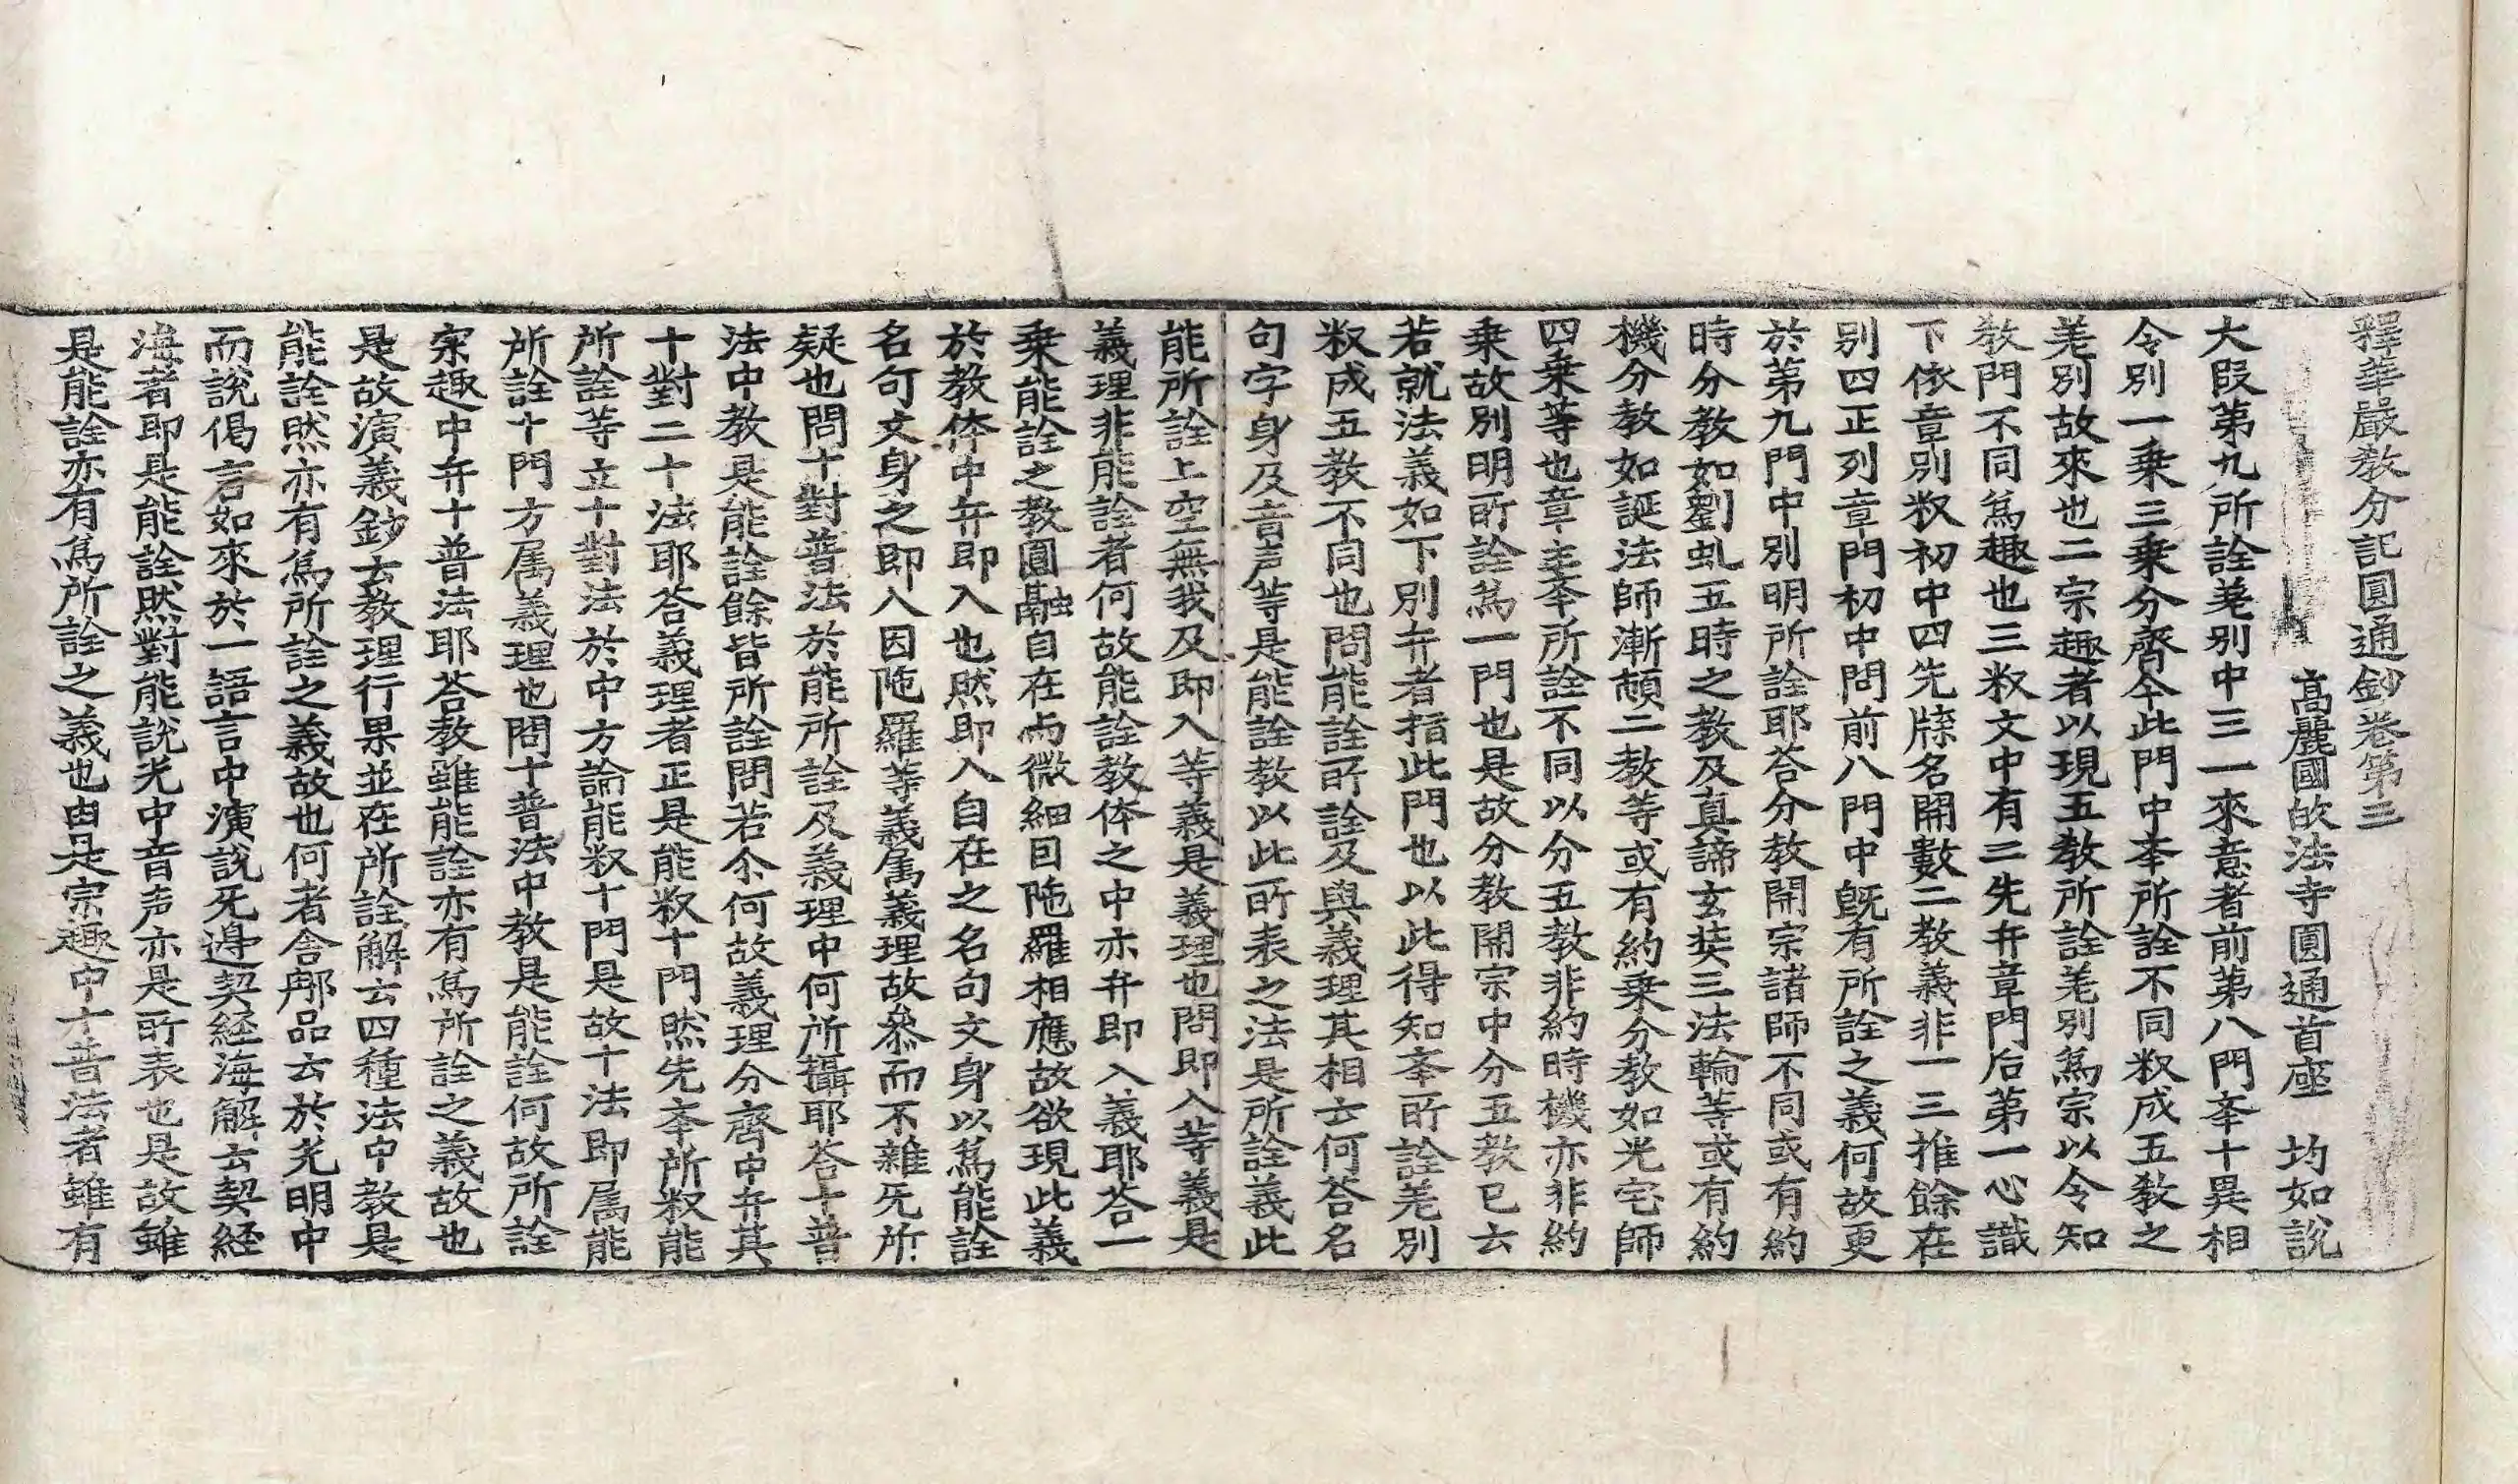 釋華嚴教分記圓通鈔卷第三
高麗國㱕法寺圓通首座　均如說
大段第九所詮差別中三一來意者前第八門夲十異相
令別一乗三乗分齊今此門中夲所詮不同㕘成五教之
差別故來也二宗趣者以現五教所詮差別為宗以令知
教門不同為趣也三㕘文中有二先弁章門后第一心識
下依章別㕘初中四先牒名開數二教義非一三推餘在
別四正列章門初中問前八門中旣有所詮之義何故更
於第九門中別明所詮耶荅分教開宗諸師不同或有約
時分教如劉虬五時之教及真諦玄奘三法輪等或有約
機分教如誕法師漸頓二教等或有約乗分教如光宅師
四乗等也章主夲所詮不同以分五教非約時機亦非約
乗故別明所詮為一門也是故分教開宗中分五教已云
若就法義如下別弁者指此門也以此得知夲所詮差別
㕘成五教不同也問能詮所詮及與義理其相云何荅名
句字身及音声等是能詮教以此所表之法是所詮義此
能所詮上空無我及即入等義是義理也問即入等義是
義理非能詮者何故能詮教体之中亦弁即入義耶荅一
乗能詮之教圓融自在而微細囙陁羅相應故欲現此義
於教体中弁即入也然即入自在之名句文身以為能詮
名句文身之即入因陁羅等義属義理故叅而不雜旡所
疑也問十對普法於能所詮及義理中何所攝耶荅十普
法中教是能詮餘皆所詮問若尒何故義理分齊中弁其
十對二十法耶荅義理者正是能㕘十門然先夲所㕘能
所詮等立十對法於中方論能㕘十門是故十法即属能
所詮十門方属義理也問十普法中教是能詮何故所詮
宗趣中弁十普法耶荅教雖能詮亦有為所詮之義故也
是故演義鈔云教理行果並在所詮解云四種法中教是
能詮然亦有為所詮之義故也何者舍那品云於光明中
而說偈言如來於一語言中演說旡邊契経海解云契経
海者即是能詮然對能說光中音声亦是所表也是故雖
是能詮亦有為所詮之義也由是宗趣中十普法者雖有